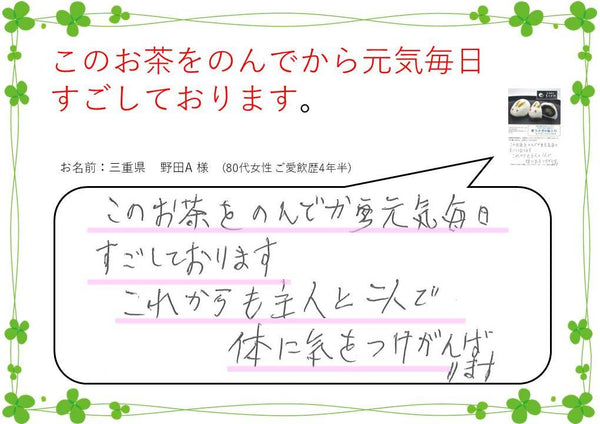 このお茶をのんでから元気毎日
すごしております。
お名前：三重県　野田A 様　（80代女性 ご愛飲歴4年半）
このお茶をのんでから元気毎日
すごしております
これからも主人と二人で
体に気をつけがんば
ります